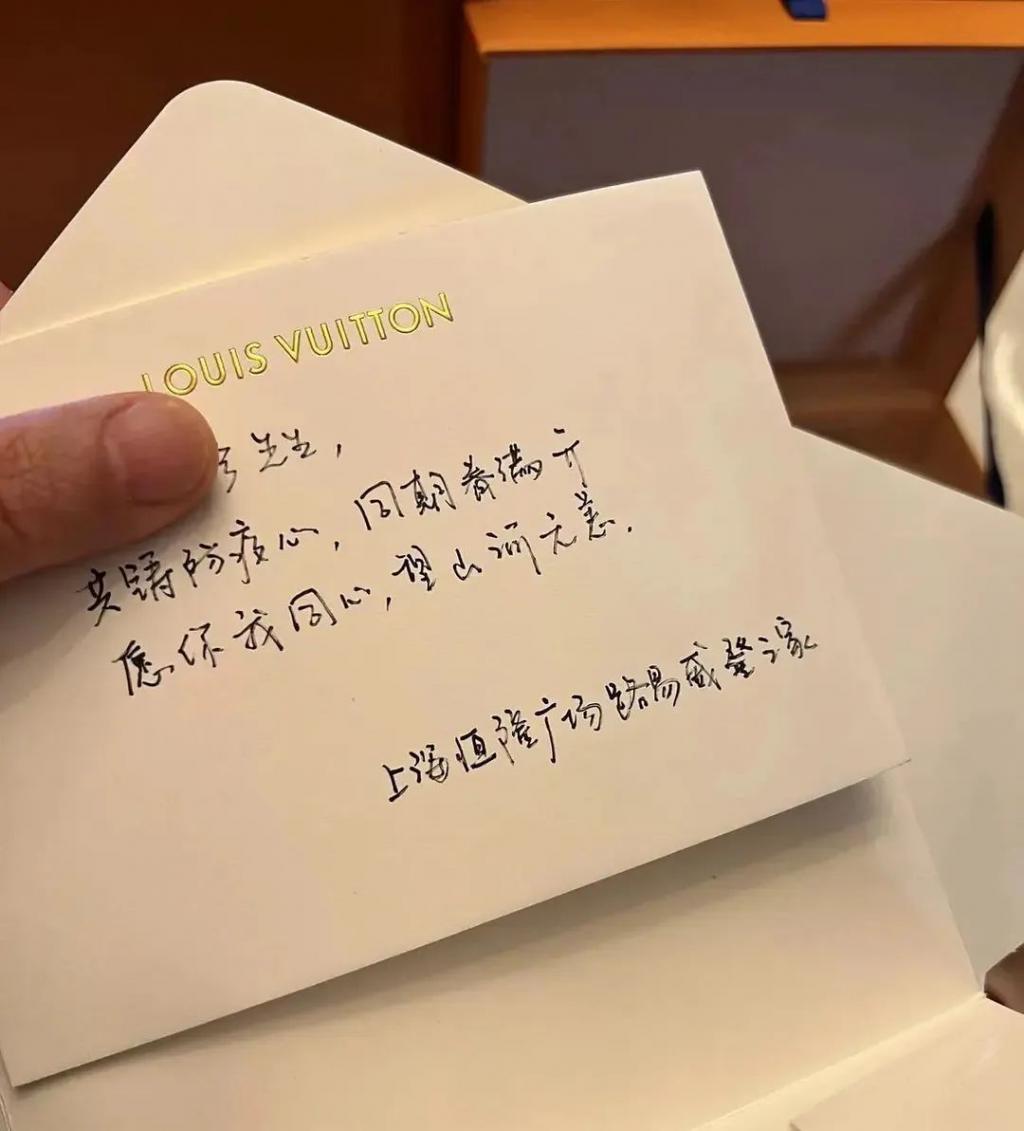 LOUIS VUITTON
先生,
共铸防疫心,同期春满开
愿你我同心,望山河无恙.
上海恒隆广场路易威登之家